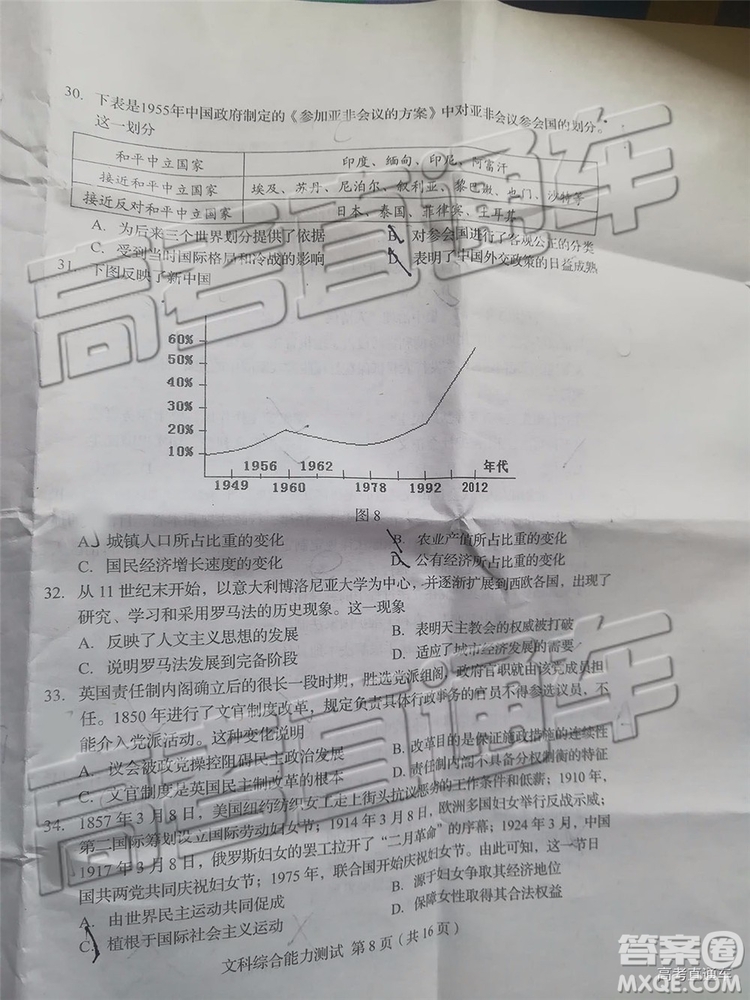 30. 下表是1955年中国政府制定的《参加亚非会议的方案》中对亚非会议参会国的划分。
这一划分
和平中立国家 印度、缅甸、印尼、阿富汗
接近和平中立国家 埃及、苏丹、尼泊尔、叙利亚、黎巴嫩、也门、沙特等
接近反对和平中立国家 日本、泰国、菲律宾、土耳其
A. 为后来三个世界划分提供了依据 B. 对参会国进行了客观公正的分类
C. 受到当时国际格局和冷战的影响 D. 表明了中国外交政策的日益成熟
31. 下图反映了新中国
60%
50%
40%
30%
20%
10%
1956 1962 年代
1949 1960 1978 1992 2012
图8
A. 城镇人口所占比重的变化 B. 农业产值所占比重的变化
C. 国民经济增长速度的变化 D. 公有经济所占比重的变化
32. 从11世纪末开始，以意大利博洛尼亚大学为中心，并逐渐扩展到西欧各国，出现了
研究、学习和采用罗马法的历史现象。这一现象
A. 反映了人文主义思想的发展 B. 表明天主教会的权威被打破
C. 说明罗马法发展到完备阶段 D. 适应了城市经济发展的需要
33. 英国责任制内阁确立后的很长一段时期，胜选党派组阁，政府官职就由该党成员担
任。1850年进行了文官制度改革，规定负责具体行政事务的官员不得参选议员，不
能介入党派活动。这种变化说明
A. 议会被政党操控阻碍民主政治发展 B. 改革目的是保证施政措施的连续性
C. 文官制度是英国民主制改革的根本 D. 责任制内阁不具备分权制衡的特征
34. 1857年3月8日，美国纽约纺织女工走上街头抗议恶劣的工作条件和低薪；1910年，
第二国际筹划设立国际劳动妇女节；1914年3月8日，欧洲多国妇女举行反战示威；
1917年3月8日，俄罗斯妇女的罢工拉开了“二月革命”的序幕；1924年3月，中国
国共两党共同庆祝妇女节；1975年，联合国开始庆祝妇女节。由此可知，这一节日
A. 由世界民主运动共同促成 B. 源于妇女争取其经济地位
C. 植根于国际社会主义运动 D. 保障女性取得其合法权益
文科综合能力测试 第8页（共16页）
高考直通车
高考直通车
答案圈
MXQE.COM
高考直通车